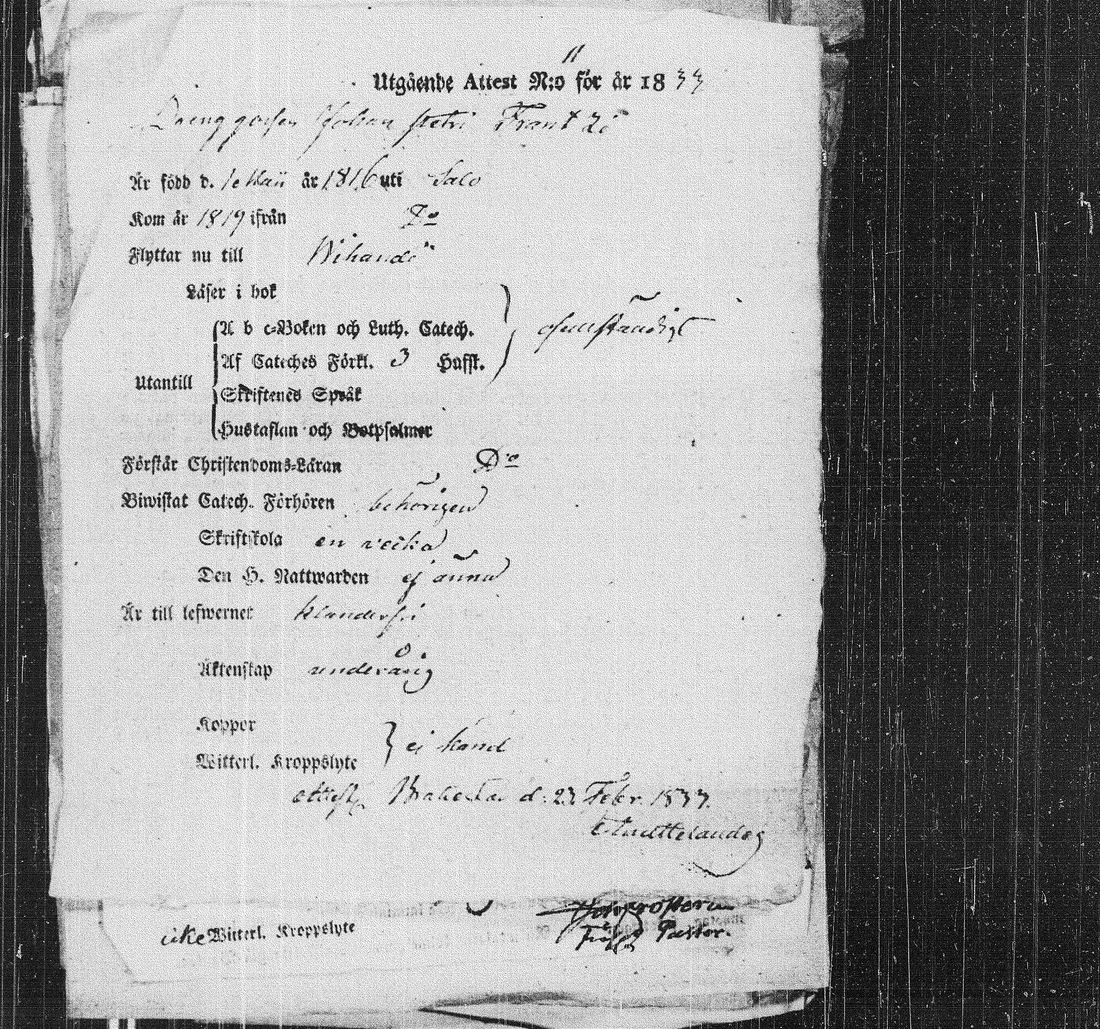 11
Utgående Attest N:o för år 1833
Johan Petri Frantzi
Är född d. 1e Maii år 1816 uti Salo
Kom år 1819 ifrån Do
Flyttar nu till Wihandi
Läser i bok
A b c-Boken och Luth. Catech.
Af Cateches Förkl. 3 Hufst.
Utantill
Skriftenes Språk
Hustaflan och Botpsalmer
Förstår Christendoms-Läran Do
Biwistat Catech. Förhören behörigen
Skriftskola en vecka
Den H. Nattwarden ej ännu
Är till lefwernet klanderfri
Äktenskap underårig
Koppor
Witterl. Kroppslyte } ej känd
attest. Brahestad d. 23 Febr. 1833.
icke Witterl. Kroppslyte
Pastor.